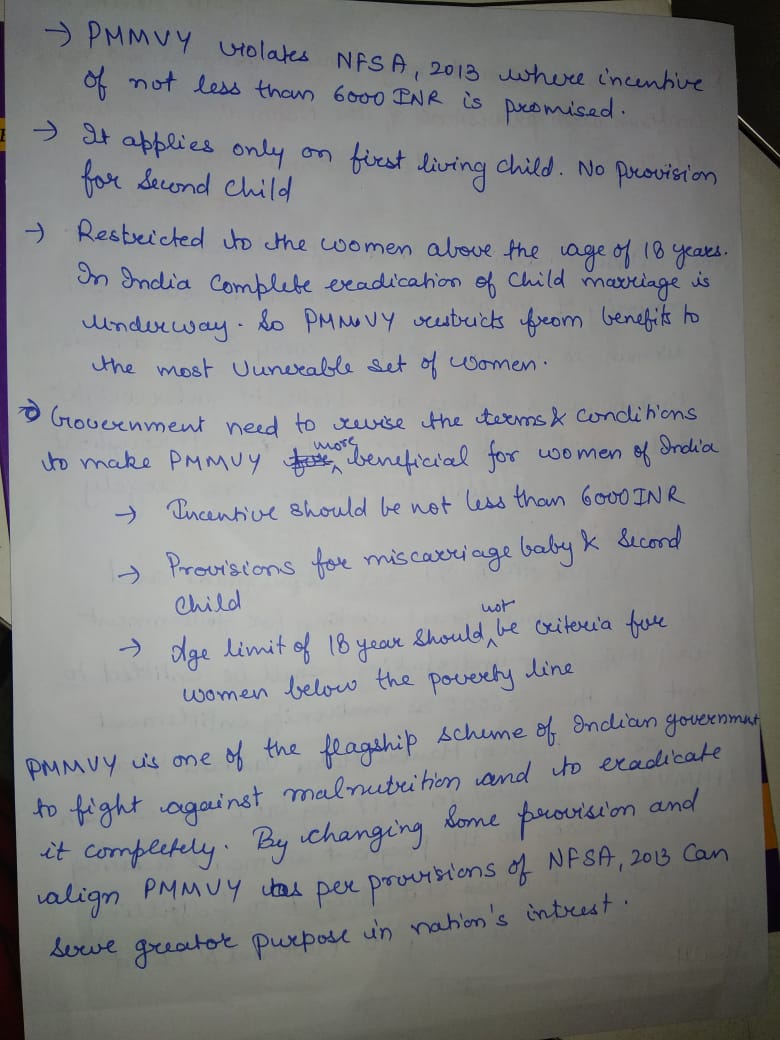 → PMMVY violates NFSA, 2013 where incentive
of not less than 6000 INR is promised.
→ It applies only on first living child. No provision
for Second Child
→ Restricted to the women above the age of 18 years.
In India Complete eradication of Child marriage is
Underway. So PMMVY restricts from benefits to
the most Vunerable set of women.
→ Government need to revise the terms & conditions
more
to make PMMVY for beneficial for women of India
→ Incentive should be not less than 6000 INR
→ Provisions for miscarriage baby & Second
Child
not
→ Age limit of 18 year should be criteria for
women below the poverty line
PMMVY is one of the flagship scheme of Indian government
to fight against malnutrition and to eradicate
it completely. By changing Some provision and
align PMMVY as per provisions of NFSA, 2013 Can
Serve greator purpose in nation's intrest.